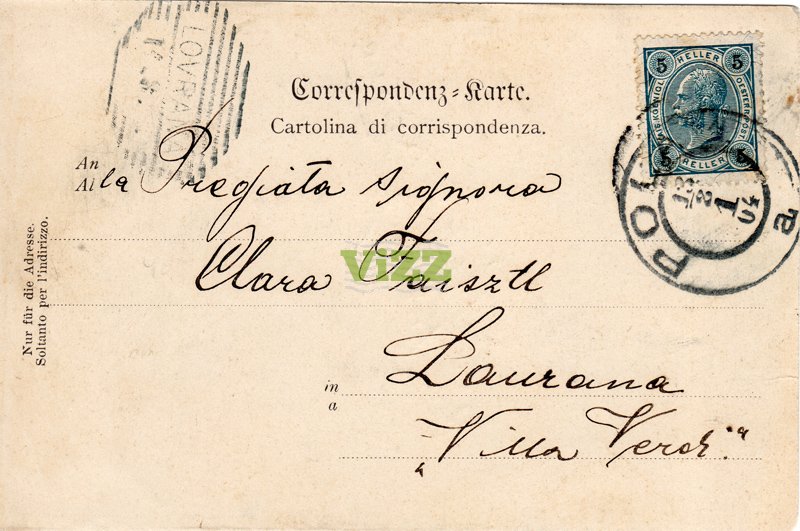 LOVRANA
Correspondenz-Karte.
Cartolina di corrispondenza.
5 HELLER 5
OESTERR. POST
5 HELLER 5
Pola
1
04
An
Al la Pregiata Signora
Clara Faisztl
ViZZ
in
a
Laurana
„Villa Verdi“
Nur für die Adresse.
Soltanto per l'indirizzo.